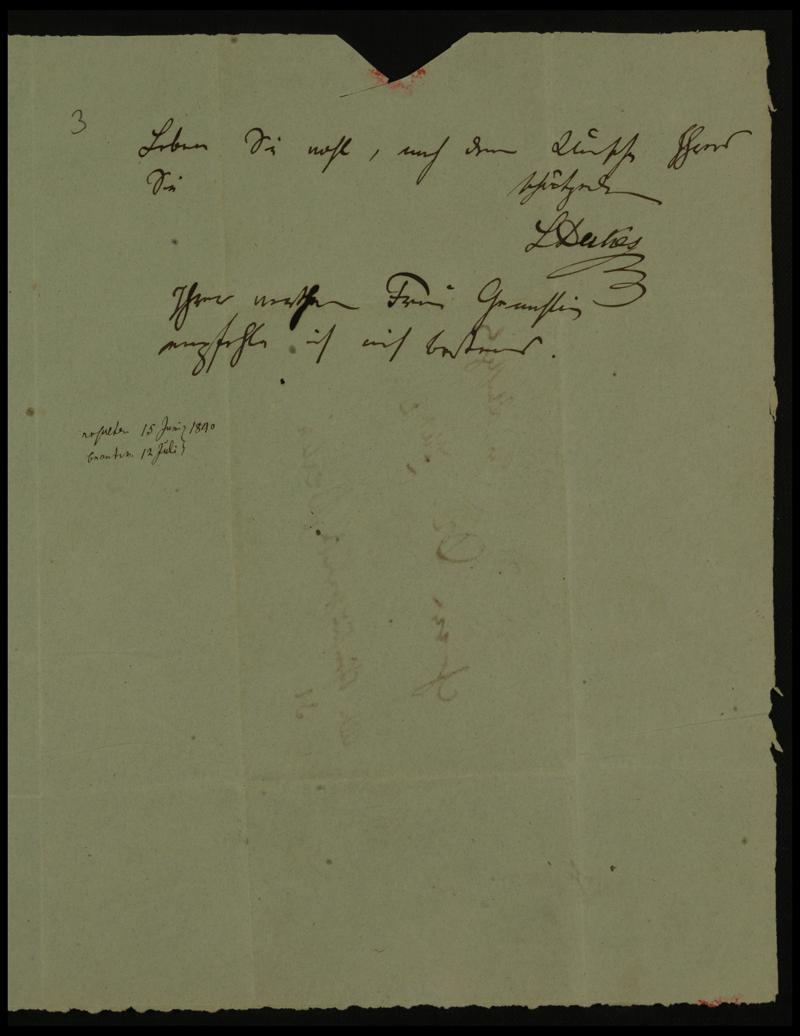 3
Leben Sie wohl, nach dem Wunsche Ihres
Sie schätzenden
L Dukes
Ihrer werthen Frau Gemahlin
empfehle ich mich bestens.
erhalten 15 Juni 1840
beantw. 12 Juli